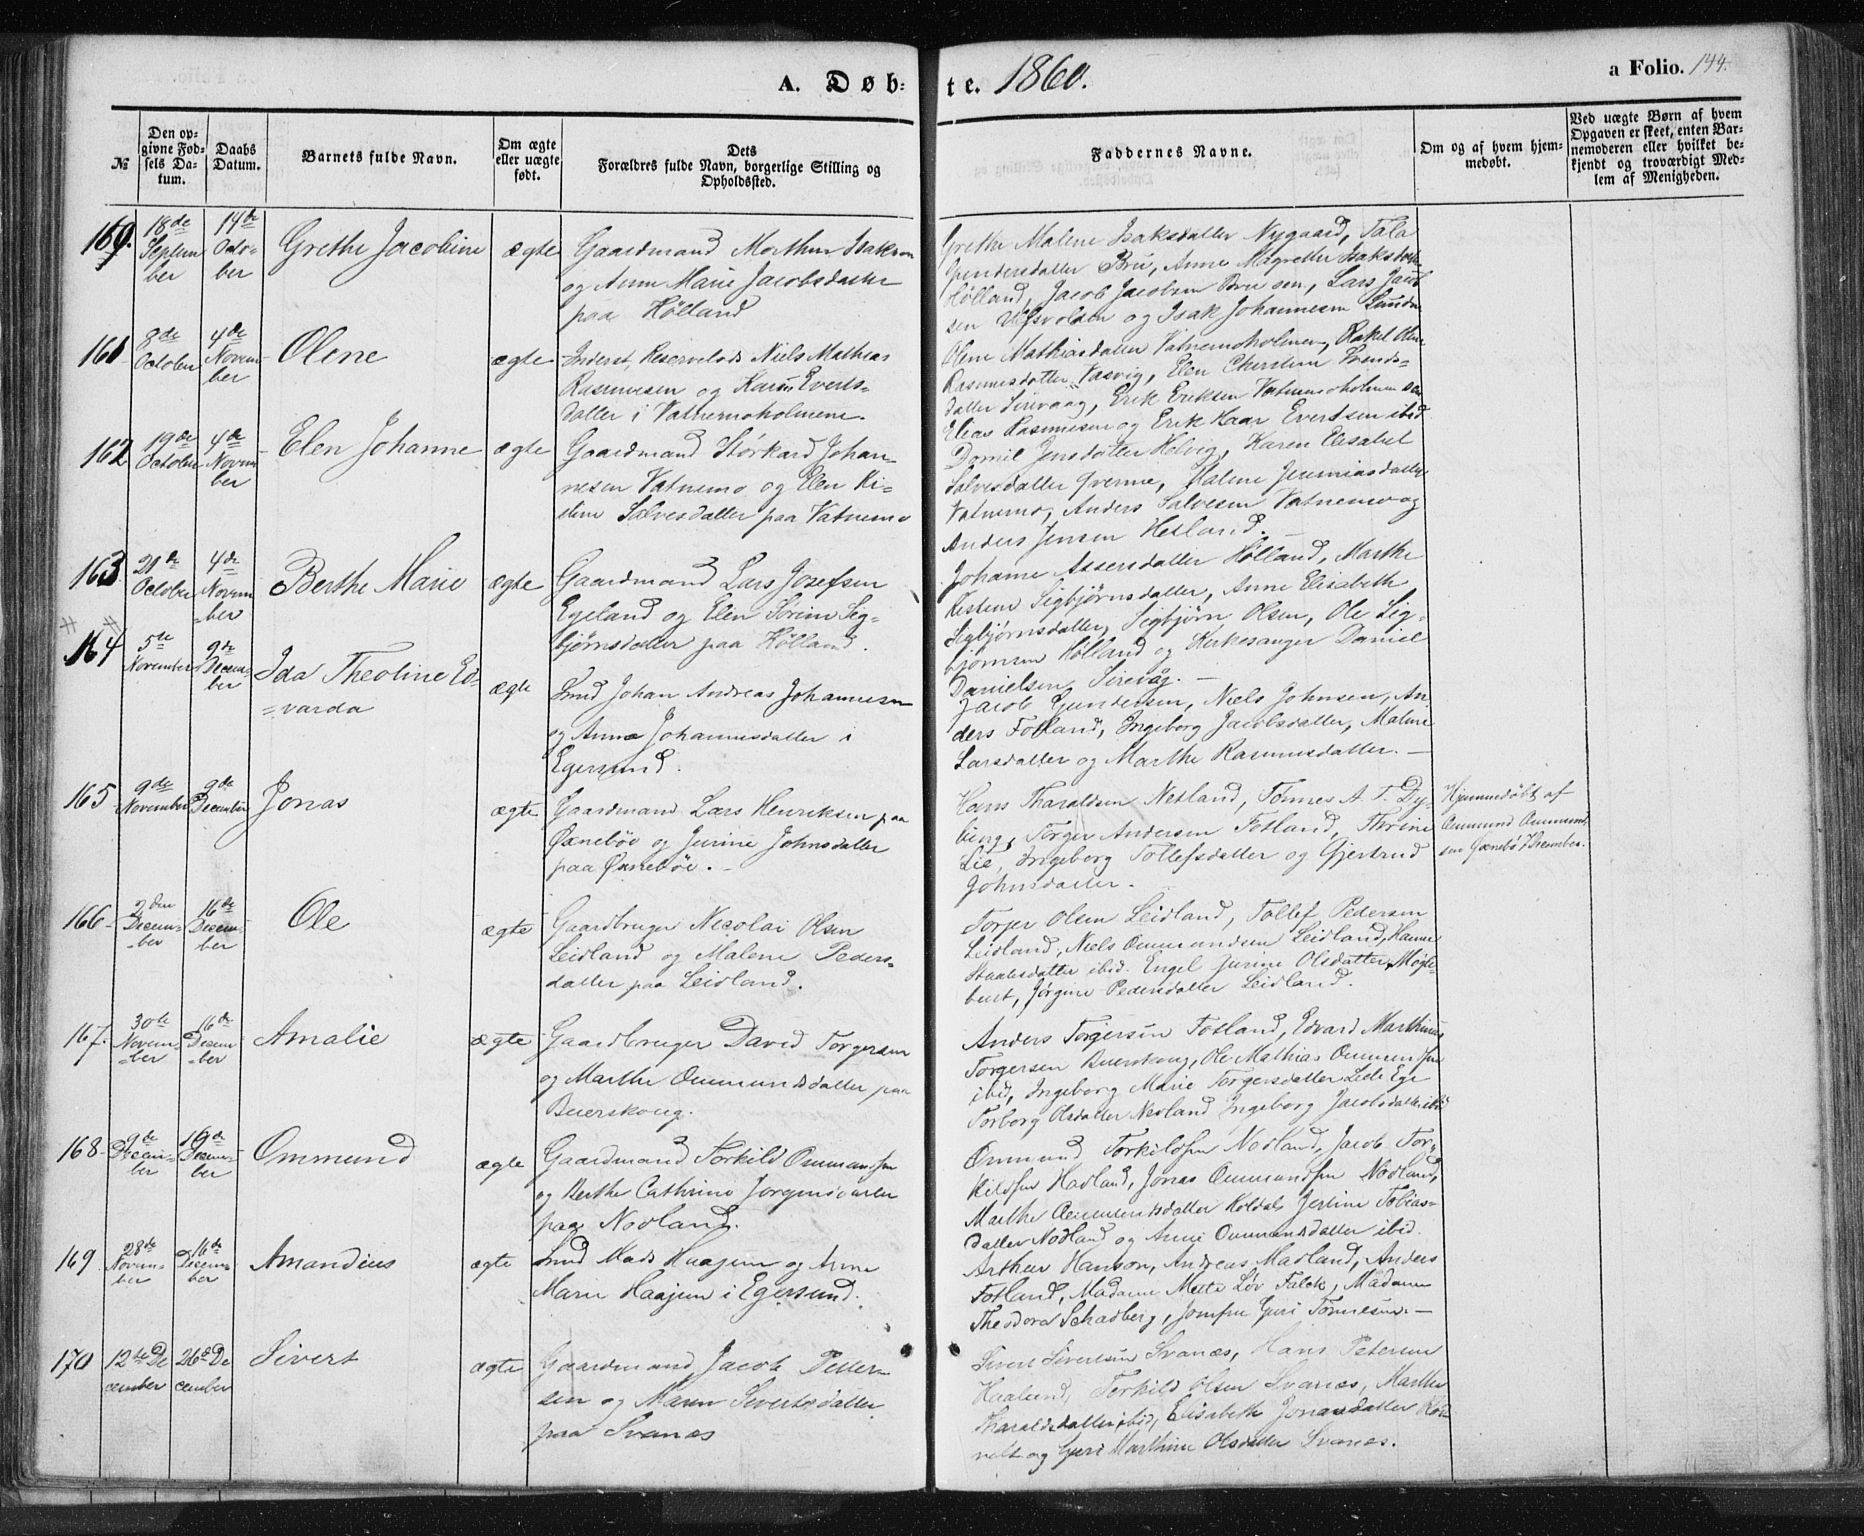 A. Døb-
te. 1860.
a Folio. 144.
№
Den op-
givne Fød-
sels Da-
tum.
Daabs
Datum.
Barnets fulde Navn.
Om ægte
eller uægte
født.
Dets
Forældres fulde Navn, borgerlige Stilling og
Opholdssted.
Faddernes Navne.
Om og af hvem hjem-
medøbt.
Ved uægte Børn af hvem
Opgaven er skeet, enten Bar-
nemoderen eller hvilket be-
kjendt og troværdigt Med-
lem af Menigheden.
160.
18de
Septem
ber
14de
Octo-
ber
Grethe Jacobine
ægte
Gaardmand Morthen Isaksen
og Anne Marie Jacobsdatter
paa Hølland
Grethe Malene Isaksdatter Nygaard, Tala
Bru, Anne Magrethe Isaksdatter
Hølland, Jacob Jacobsen Bru sen, Lars Jacob
sen og Isak Johannesen
161
8de
October
4de
Novem
ber
Olene
ægte
Inderst, Niels Mathias
Rasmusen og Karen Everts-
datter i Vatnemoholmene.
Olene Mathiasdatter Vatnemoholmen, Rakel
Rasmusdatter Vasvig, Elen Christine
datter Sirevaag, Erik Eriksen Vatnemoholmen
Elias Rasmusen og Erik Haar Evertsen ibid
162
19de
October
4de
Novem
ber
Elen Johanne
ægte
Gaardmand Størkard Johan-
nesen Vatnemo og Elen Ki-
stine Salvesdatter paa Vatnemo
Jensdatter Helvig, Karen Elisabet
Salvesdatter Qverme, Malene Jeremiasdatter
Vatnemo, Anders Salvesen Vatnemo og
Anders Jensen Hetland. —
163
21de
October
4de
Novem
-ber
Berthe Marie
ægte
Gaardmand Lars Josefsen
Egeland og Elen Sørine Sig-
bjørnsdatter paa Hølland.
Johanne Assersdatter Hølland, Marthe
Kistene Sigbjørnsdatter, Anne Elisabeth
Sigbjørnsdatter, Sigbjørn Olsen, Ole Sig-
bjørnsen Hølland og Kirkesanger Daniel
Danielsen Sirevåg. —
164
5te
November
9de
Decem-
ber
Ida Theoline Ed-
=varda
ægte
Smed Johan Andreas Johannesen
og Anna Johannesdatter i
Egersund.
Jacob Gundersen, Niels Johnsen, An-
ders Fotland, Ingeborg Jacobsdatter, Malene
Larsdatter og Marthe Rasmusdatter. —
165
9de
November
9de
December
Jonas
ægte
Gaardmand Lars Henriksen paa
Øxnebøe og Jurine Johnsdatter
paa Øxnebøe. —
Hans Tharaldsen Netland, Tønnes A. T. Dy-
bing, Torger Andersen Fotland, Thrine
Lie, Ingeborg Tollefsdatter og Gjertrud
Johnsdatter.
Hjemmedøbt af
Ommund Ommund-
sen Øxnebø 7 December.
166
2den
Decem-
-ber
16de
Decem-
ber
Ole
ægte
Gaardbruger Nicolai Olsen
Leidland og Malene Peders-
datter paa Leidland.
Torjer Olsen Leidland, Tollef Pedersen
Leidland, Niels Ommundsen Leidland, Hanne
datter ibid. Engel Jurine Olsdatter, Møgle-
bust, Jørgine Pedersdatter Leidland.
167.
30te
Novem-
-ber
16de
Decem
-ber
Amalie
ægte
Gaardbruger David Torgersen
og Marthe Ommundsdatter paa
Buerskoug.
Anders Torgersen Fotland, Edvard Marthinus
Torgersen Buerskoug, Ole Mathias Ommundsen
ibid, Ingeborg Marie Torgersdatter Lede Ege
Torborg Olsdatter Nevland Ingeborg Jacobsdatter ibid
168
9de
Decem-
ber
16de
Decem-
ber
Ommund
ægte
Gaardmand Torkild Ommundsen
og Berthe Cathrine Jørgensdatter
paa Nodland.
Ommund Torkildsen Nodland, Jacob Tor-
kildsen Hadland, Jonas Ommundsen Nodland,
Marthe Ommundsdatter Koldal Jertine Tobias-
datter Nodland og Anne Ommundsdatter ibid.
169
28de
Novem-
ber
16de
Decem
ber
Amandius
ægte
Smed Mads Haajen og Anne
Marie Haajen i Egersund.
Arthur Hanson, Andreas Madland, Anders
Fotland, Madame Mette Løv Falck, Madame
Theodora Schadberg, Jomfru Guri Tønnesen. —
170
12te De
cember
26de De
cember
Sivert
ægte
Gaardmand Jacob Peter-
sen og Maren Sivertsdatter
paa Svanes
Sivert Sivertsen Svanæs, Hans Petersen
Haaland, Torkild Olsen Svanæs, Marthe
Tharaldsdatter ibid, Elisabeth Jonasdatter
og Guri Marthine Olsdatter Svanæs.